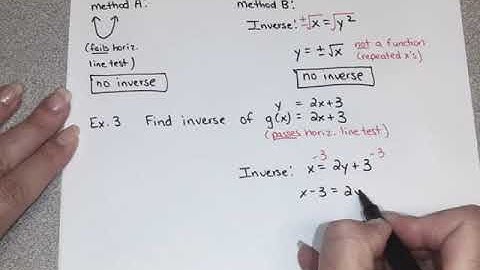 method A:
(fails horiz.
line test)
no inverse
method B:
Inverse: ±√x = √y²
y = ±√x
not a function
(repeated x's)
no inverse
y = 2x+3
Ex. 3 Find inverse of g(x) = 2x+3
(passes horiz. line test)
Inverse: x⁻³ = 2y + 3⁻³
x - 3 = 2y